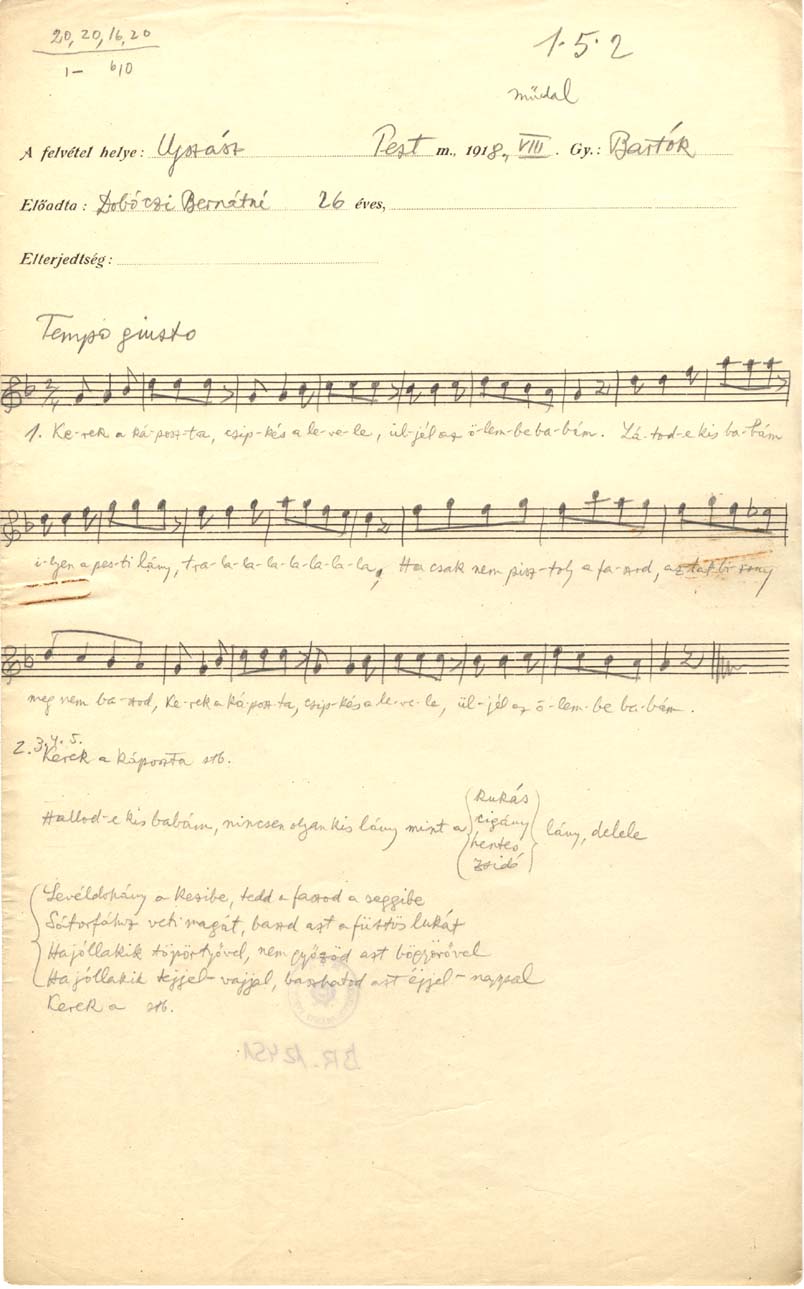 20, 20, 16, 20
1·5·2
1– b10
műdal
A felvétel helye: Ujszász Pest m., 1918, VIII. Gy.: Bartók
Előadta: Dobóczi Bernátné 26 éves,
Elterjedtség:
Tempo giusto
2/4
1. Ke-rek a ká-posz-ta, csip-kés a le-ve-le, ül-jél az ö-lem-be ba-bám. Lá-tod-e kis ba-bám
i-lyen a pes-ti lány, tra-la-la-la-la-la-la-la, Ha csak nem pisz-toly a fa-szod, aztat bi-zony
meg nem ba-szod, Ke-rek a ká-posz-ta, csip-kés a le-ve-le, ül-jél az ö-lem-be ba-bám.
2. 3. 4. 5.
Kerek a káposzta stb.
Hallod-e kis babám, nincsen olyan kis lány mint a kukás lány, delele
cigány
hentes
zsidó
Levéldohány a kezibe, tedd a faszod a seggibe
Sátorfáhaz veti magát, baszd azt a füstös lukát
Ha jóllakik töpörtyővel, nem győzöd azt bögyörővel
Ha jóllakik tejjel-vajjal, baszhatod azt éjjel-nappal
Kerek a stb.
BR. 12451